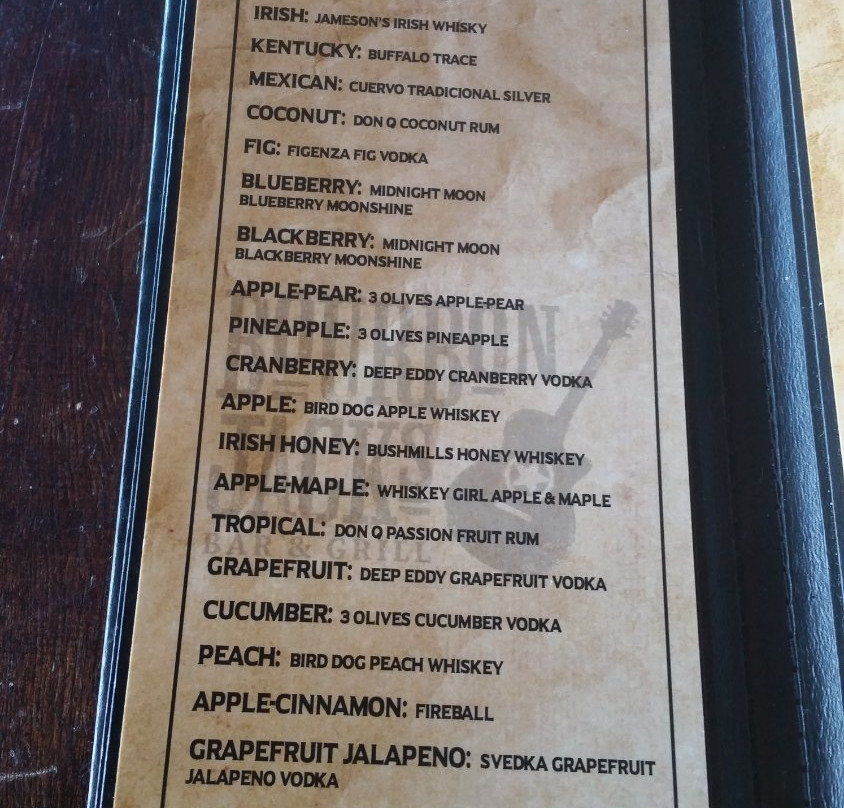 IRISH: JAMESON'S IRISH WHISKY
KENTUCKY: BUFFALO TRACE
MEXICAN: CUERVO TRADICIONAL SILVER
COCONUT: DON Q COCONUT RUM
FIG: FIGENZA FIG VODKA
BLUEBERRY: MIDNIGHT MOON
BLUEBERRY MOONSHINE
BLACKBERRY: MIDNIGHT MOON
BLACKBERRY MOONSHINE
APPLE-PEAR: 3 OLIVES APPLE-PEAR
PINEAPPLE: 3 OLIVES PINEAPPLE
CRANBERRY: DEEP EDDY CRANBERRY VODKA
APPLE: BIRD DOG APPLE WHISKEY
IRISH HONEY: BUSHMILLS HONEY WHISKEY
APPLE-MAPLE: WHISKEY GIRL APPLE & MAPLE
TROPICAL: DON Q PASSION FRUIT RUM
GRAPEFRUIT: DEEP EDDY GRAPEFRUIT VODKA
CUCUMBER: 3 OLIVES CUCUMBER VODKA
PEACH: BIRD DOG PEACH WHISKEY
APPLE-CINNAMON: FIREBALL
GRAPEFRUIT JALAPENO: SVEDKA GRAPEFRUIT
JALAPENO VODKA
BOURBON
JACKS
BAR & GRILL